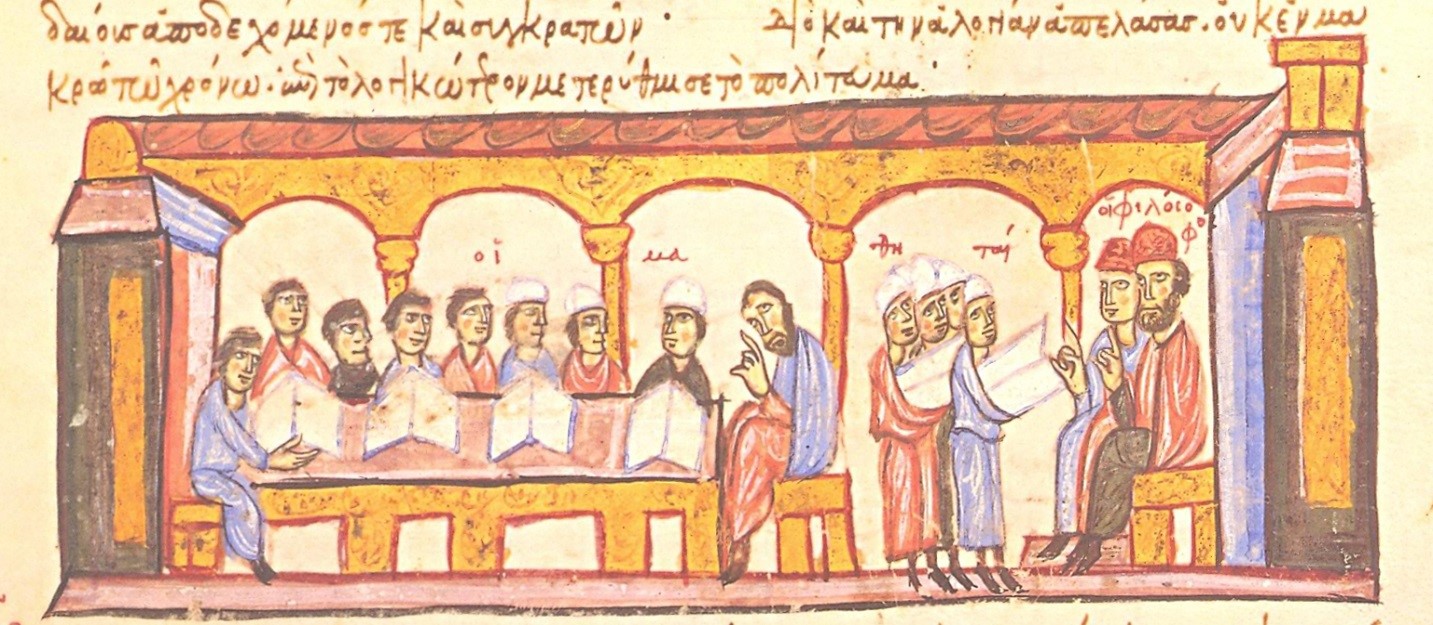 δαίοις ἀποδεχόμενός τε καὶ συγκρατῶν · Διὸ καὶ τὴν ἀλογίαν ἀπελάσας. οὐκ ἐν μα
κρῶ τῶ χρόνω. εἰς τὸ λογικώτερον μετερύθμισε τὸ πολίτευμα.
οἱ μα θη ταί
οἱ φιλόσοφοι